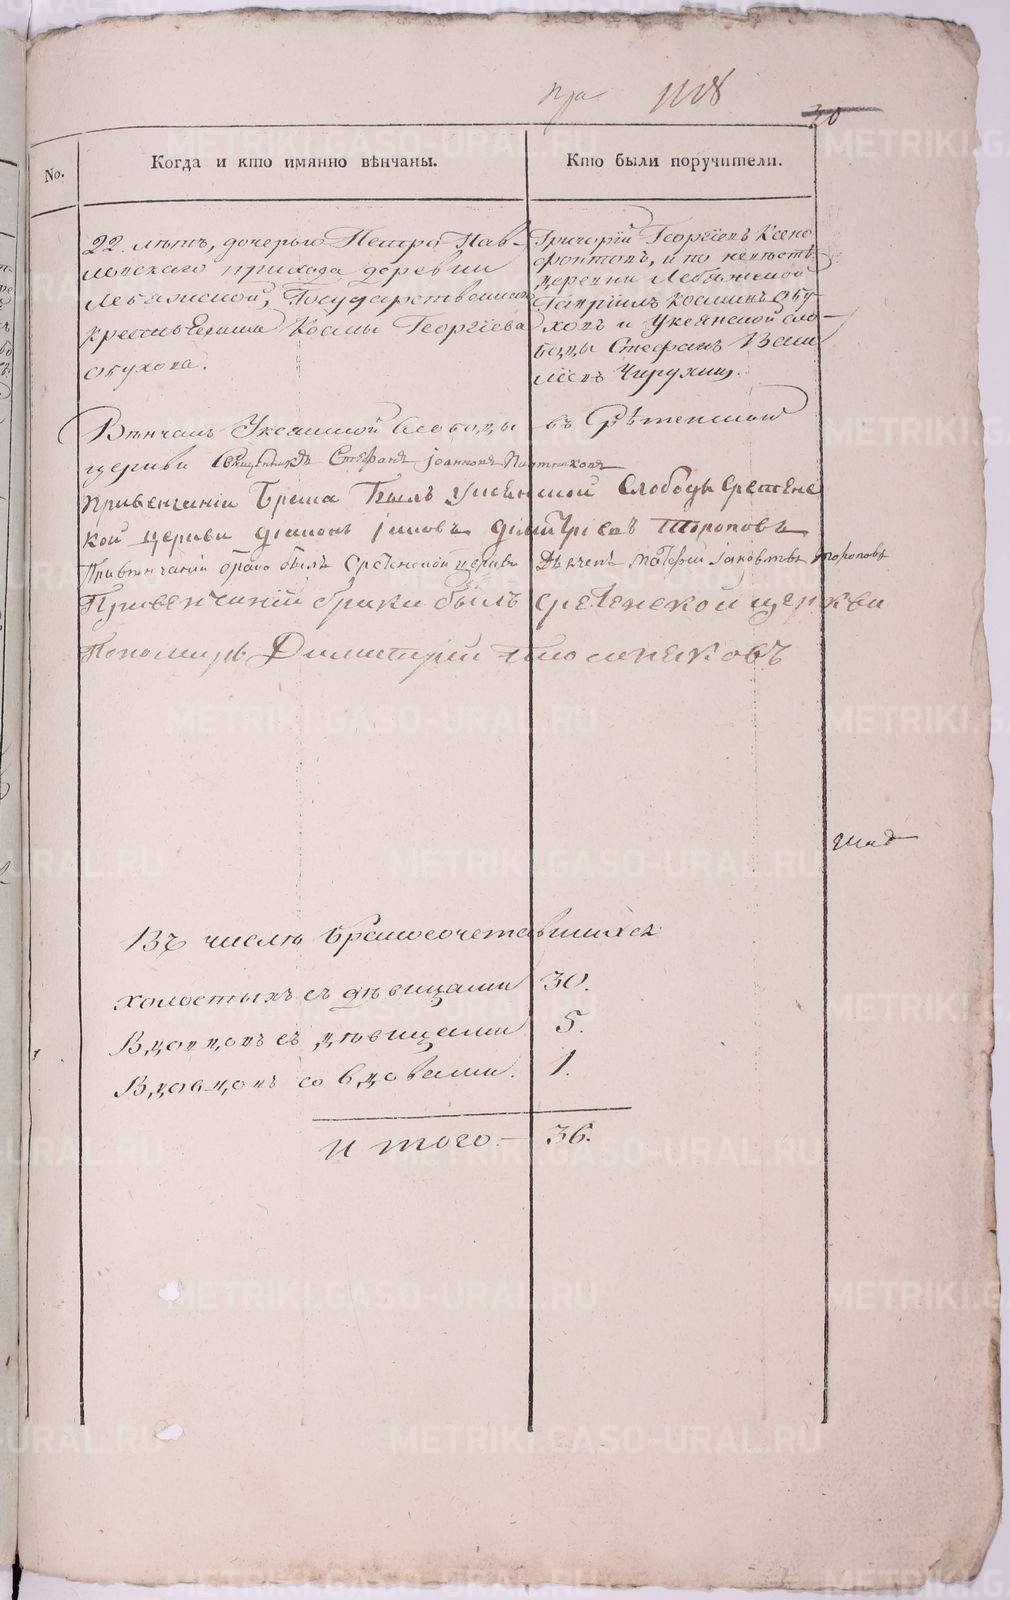 1118
20
No.
Когда и кто имянно вѣнчаны.
Кто были поручители.
22. лѣтъ, дочерью Петро Пав-
ловскаго прихода деревни
Лебяжской, Государственнаго
крестьянина Космы Георгіева
Обухова.
Григорій Георгіевъ Ксено
фонтовъ, и по невѣстѣ
деревни Лебяжской
Гавріилъ Косминъ Обу
ховъ и Уксянской сло-
боды Стефанъ Васи
ліевъ
Вѣнчалъ Уксянской Слободы въ Срѣтенской
церкви Священникъ Стефанъ Іоанновъ
Привенчаніи брака былъ Уксянской Слободы Сретенс
кой церкви діаконъ Іаковъ Димитріевъ Тороповъ
Привѣнчаніи брака былъ Сретенской церкви Дьячекъ Іаковлевъ Тороповъ
Привенчаніи брака былъ Сретенской церкви
Пономарь Димитрей
Въ числѣ бракосочетавшихся
холостыхъ съ дѣвицами 30.
Вдовцовъ съ дѣвицами 5.
Вдовцовъ со вдовами. 1.
Итого.— 36.
METRIKI.GASO-URAL.RU